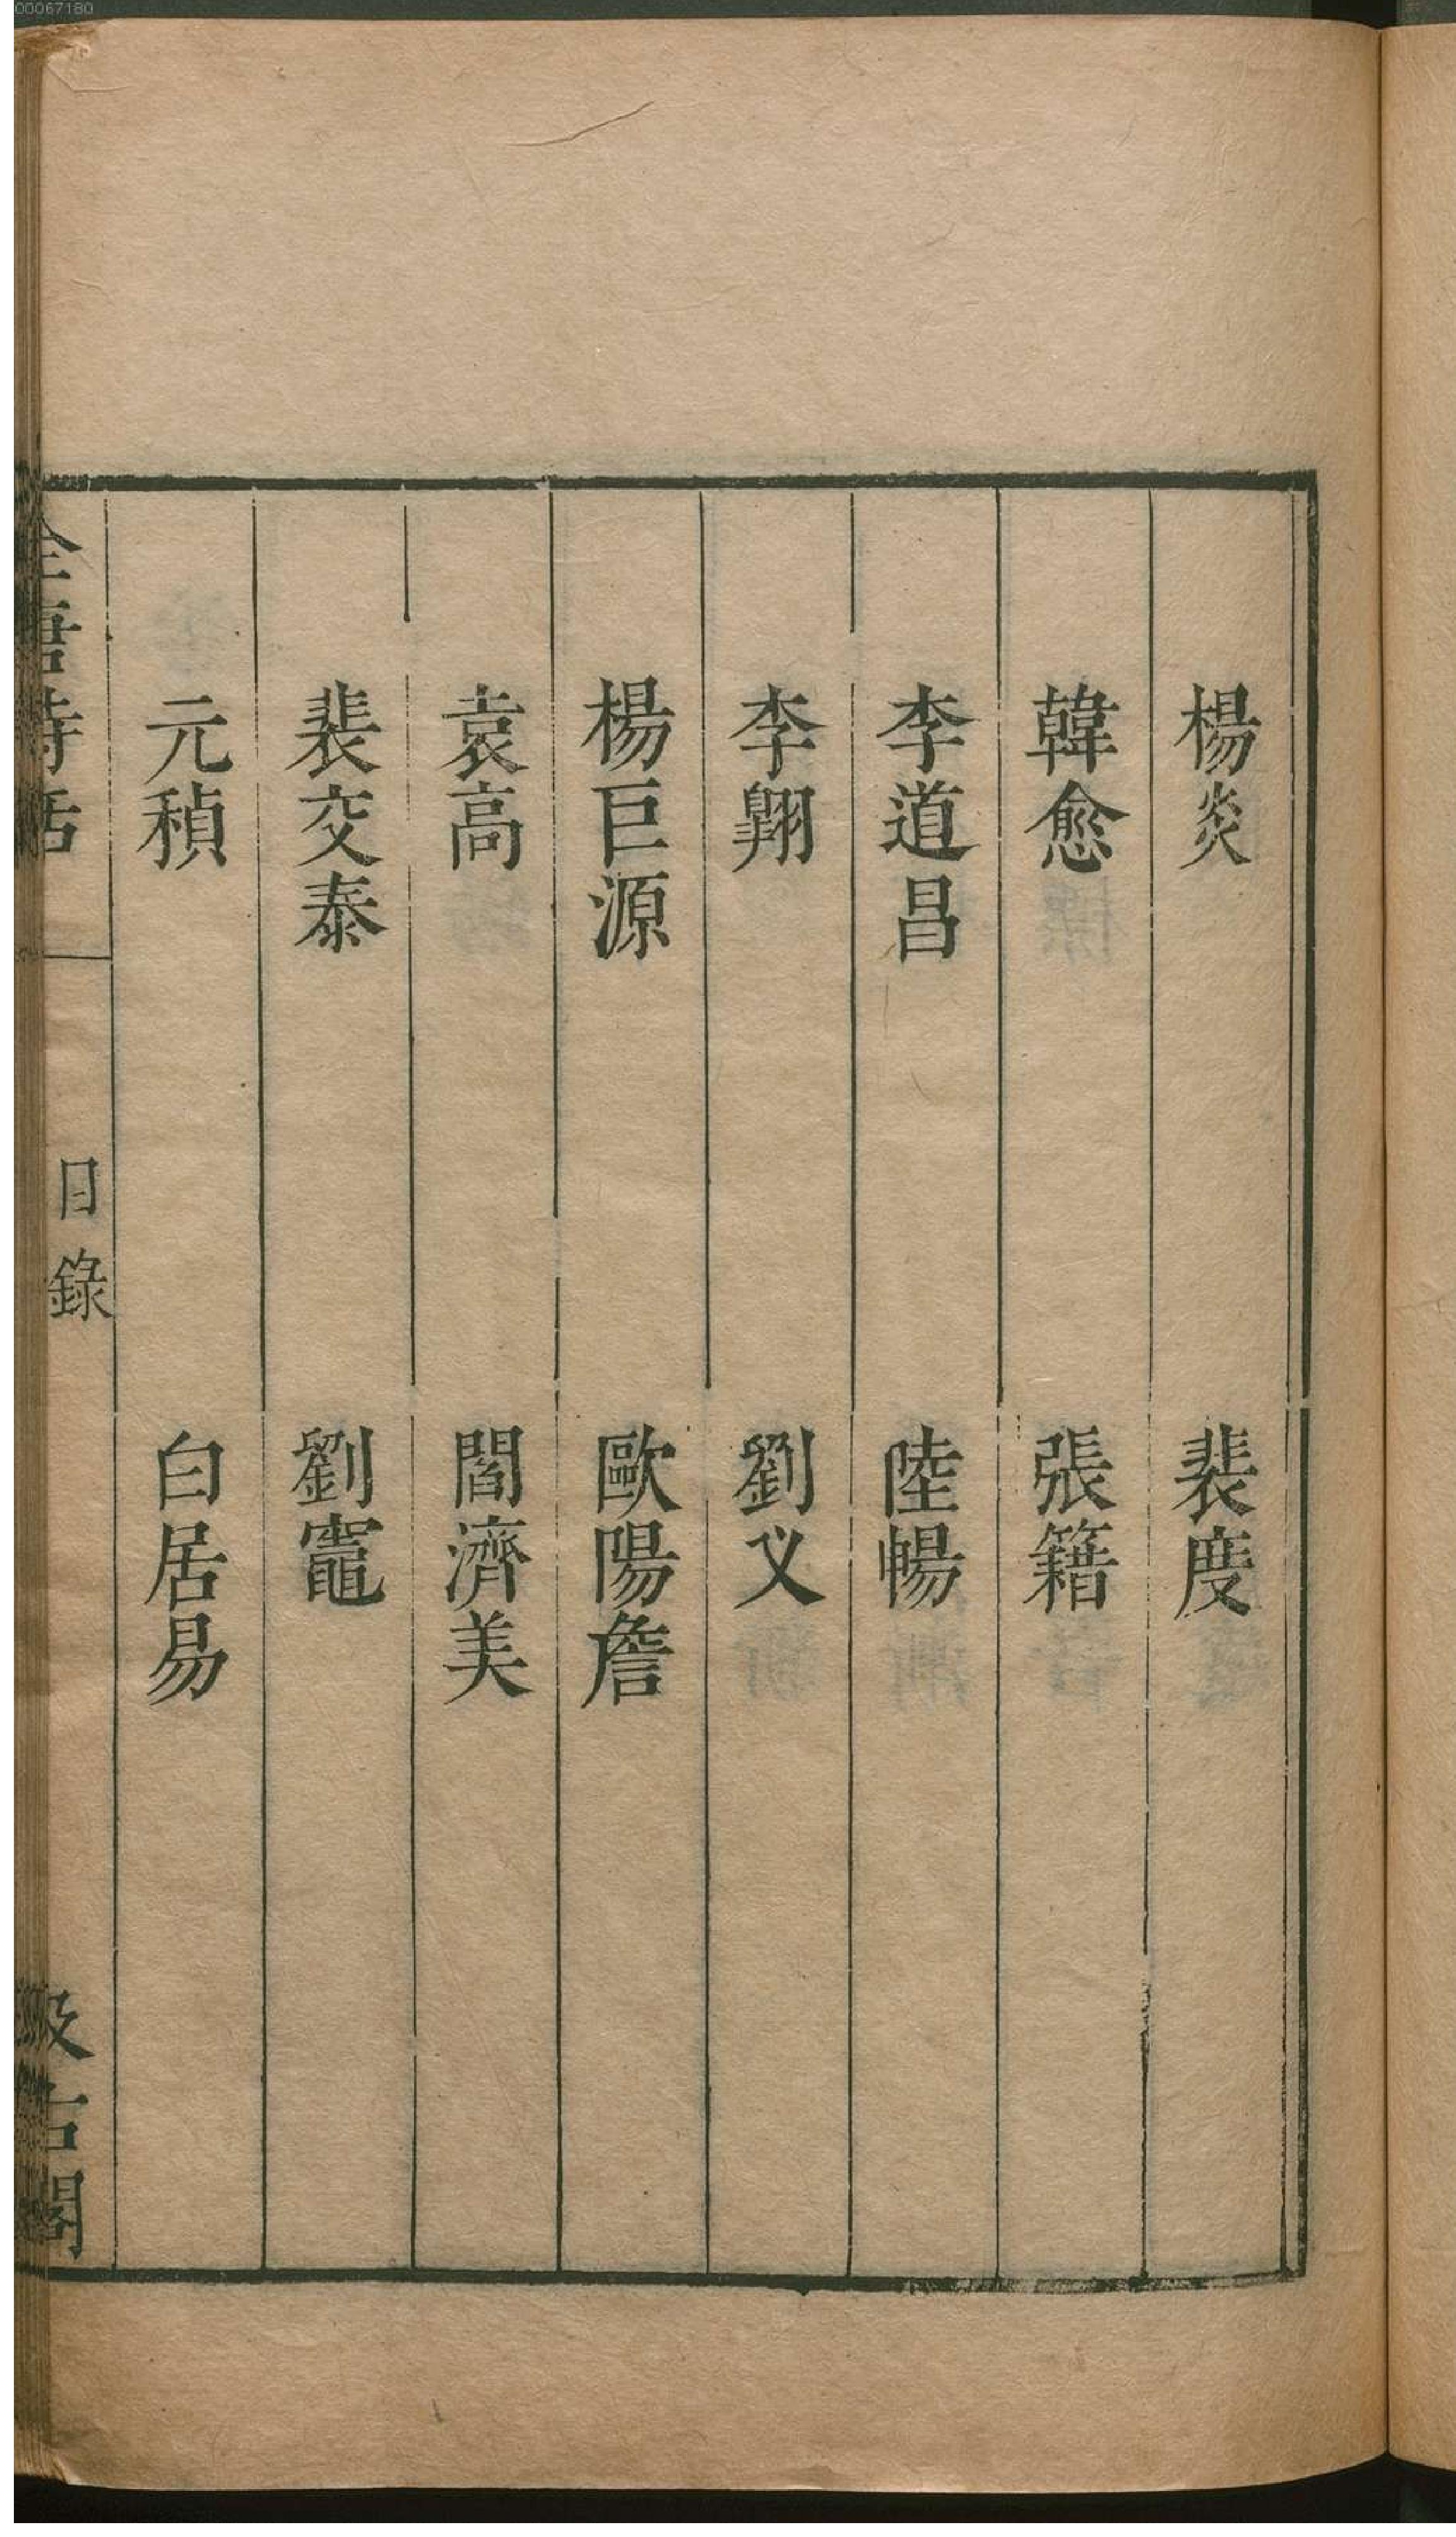 00067180
楊炎 裴度
韓愈 張籍
李道昌 陸暢
李翶 劉乂
楊巨源 歐陽詹
袁高 閻濟美
裴交泰 劉竈
元稹 白居易
全唐詩話 目錄 汲古閣